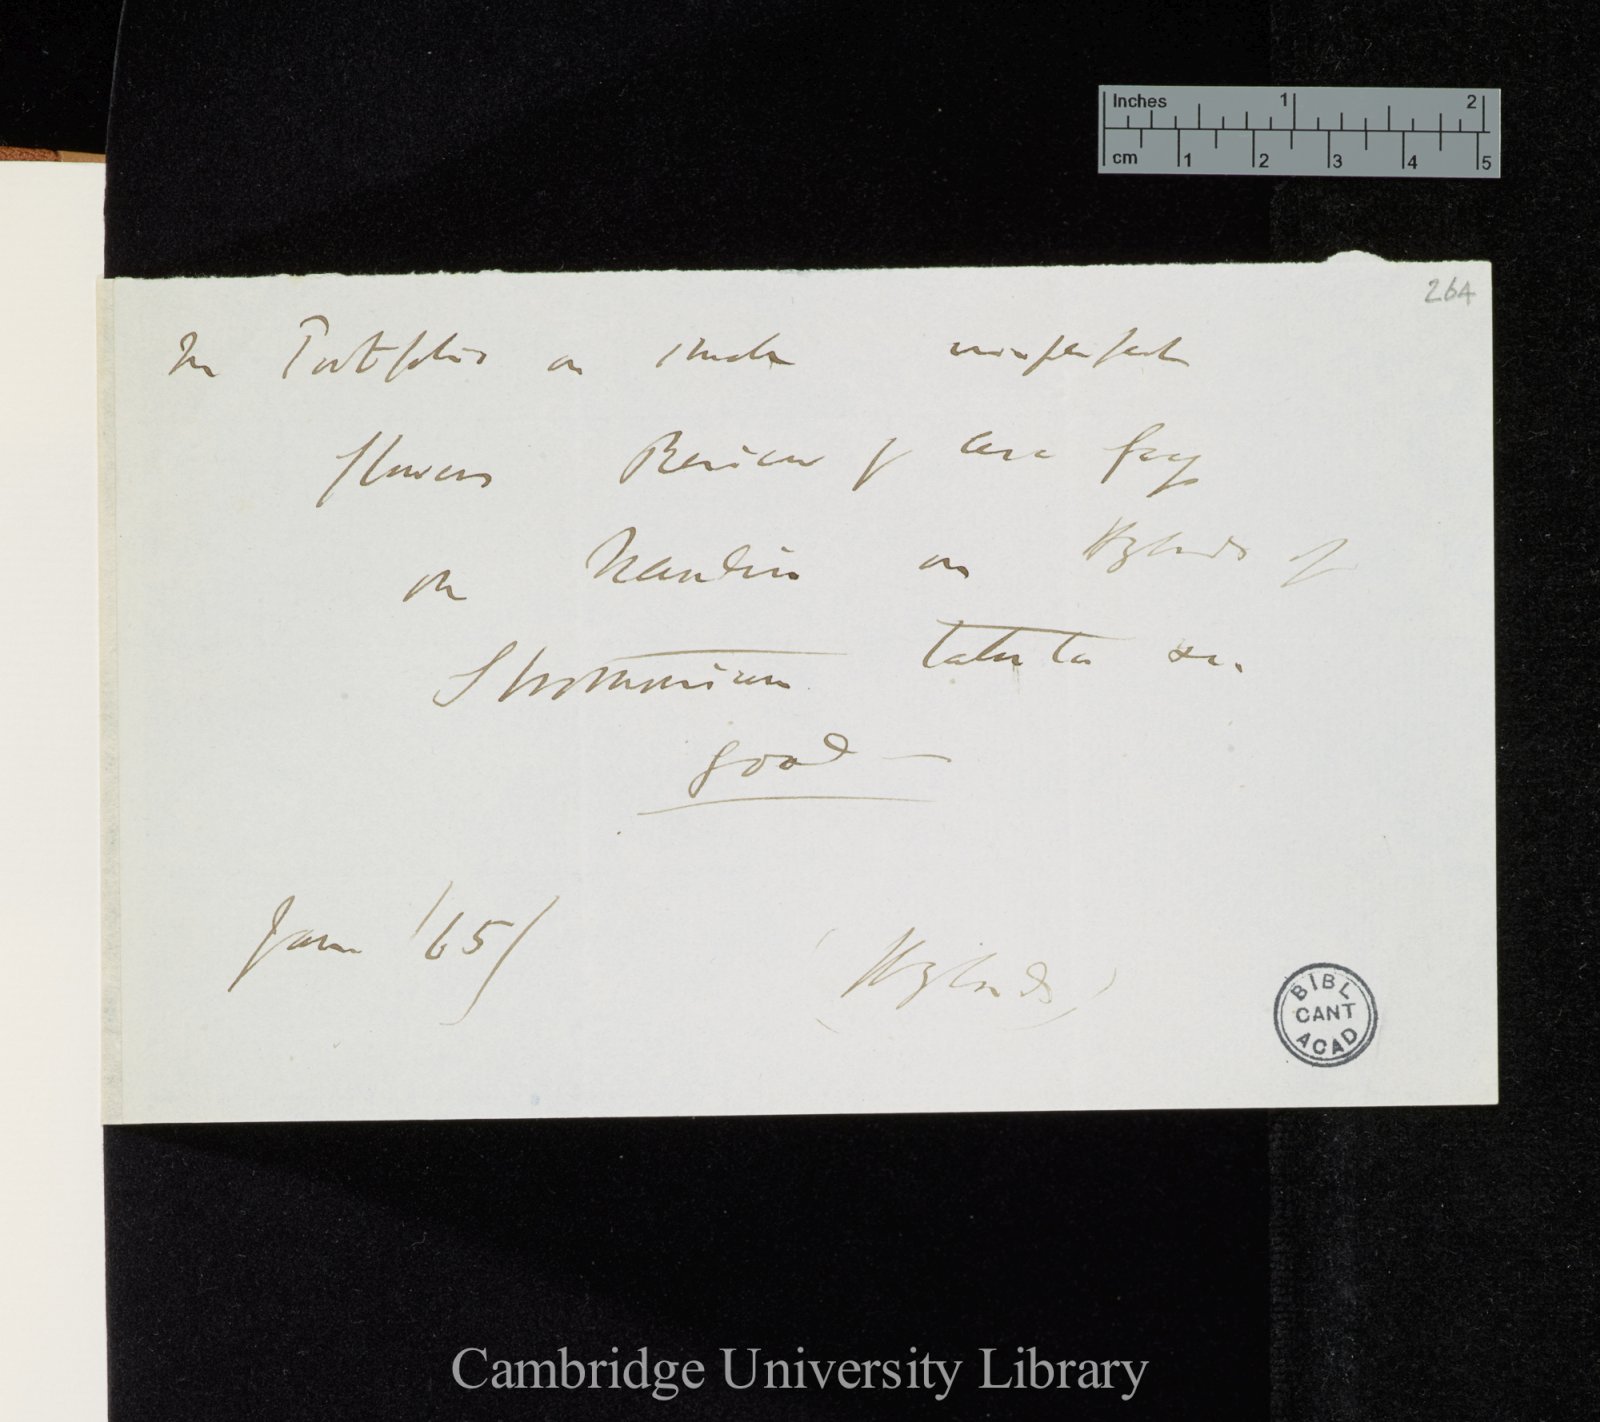 Inches 1 2
cm 1 2 3 4 5
264
In Portfolio on imperfect
flowers Review of
on Naudin on Hybrids of
Strammonium Tatula &c.
good —
Jan /65/
(Hybrids)
BIBL
CANT
ACAD
Cambridge University Library